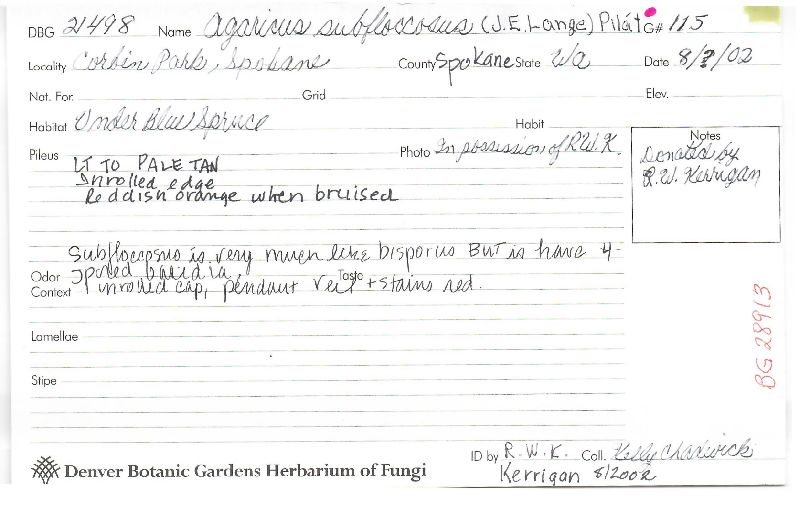 DBG 21498 Name Agaricus subfloccosus (J.E. Lange) Pilát G# 115
Locality Corbin Park, Spokane County Spokane State Wa Date 8/?/02
Nat. For. Grid Elev.
Habitat Under Blue Spruce Habit
Pileus LT TO PALE TAN Photo In possession of R.W.K.
Inrolled edge
Reddish orange when bruised
Notes
Donated by
R.W. Kerrigan
Subfloccosus is very much like bisporus BUT is have 4-
Odor spored basidia, Taste
Context inrolled cap, pendant veil + stains red.
BG 28913
Lamellae
Stipe
ID by R.W.K. Coll. Kelly Chadwick
Kerrigan 8/2002
Denver Botanic Gardens Herbarium of Fungi